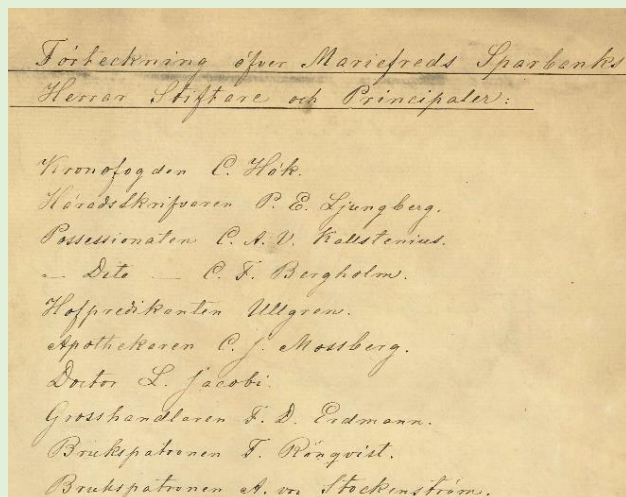 Förteckning öfver Mariefreds Sparbanks
Herrar Stiftare och Principaler:
Kronofogden C. Hök.
Häradsskrifvaren P. E. Ljungberg.
Possessionaten C. A. V. Kallstenius.
— Dito — C. F. Bergholm.
Hofpredikanten Ullgren.
Apothekaren C. J. Mossberg.
Doctor L. Jacobi.
Grosshandlaren F. D. Erdmann.
Brukspatronen F. Rönqvist.
Brukspatronen A. von Stockenström.